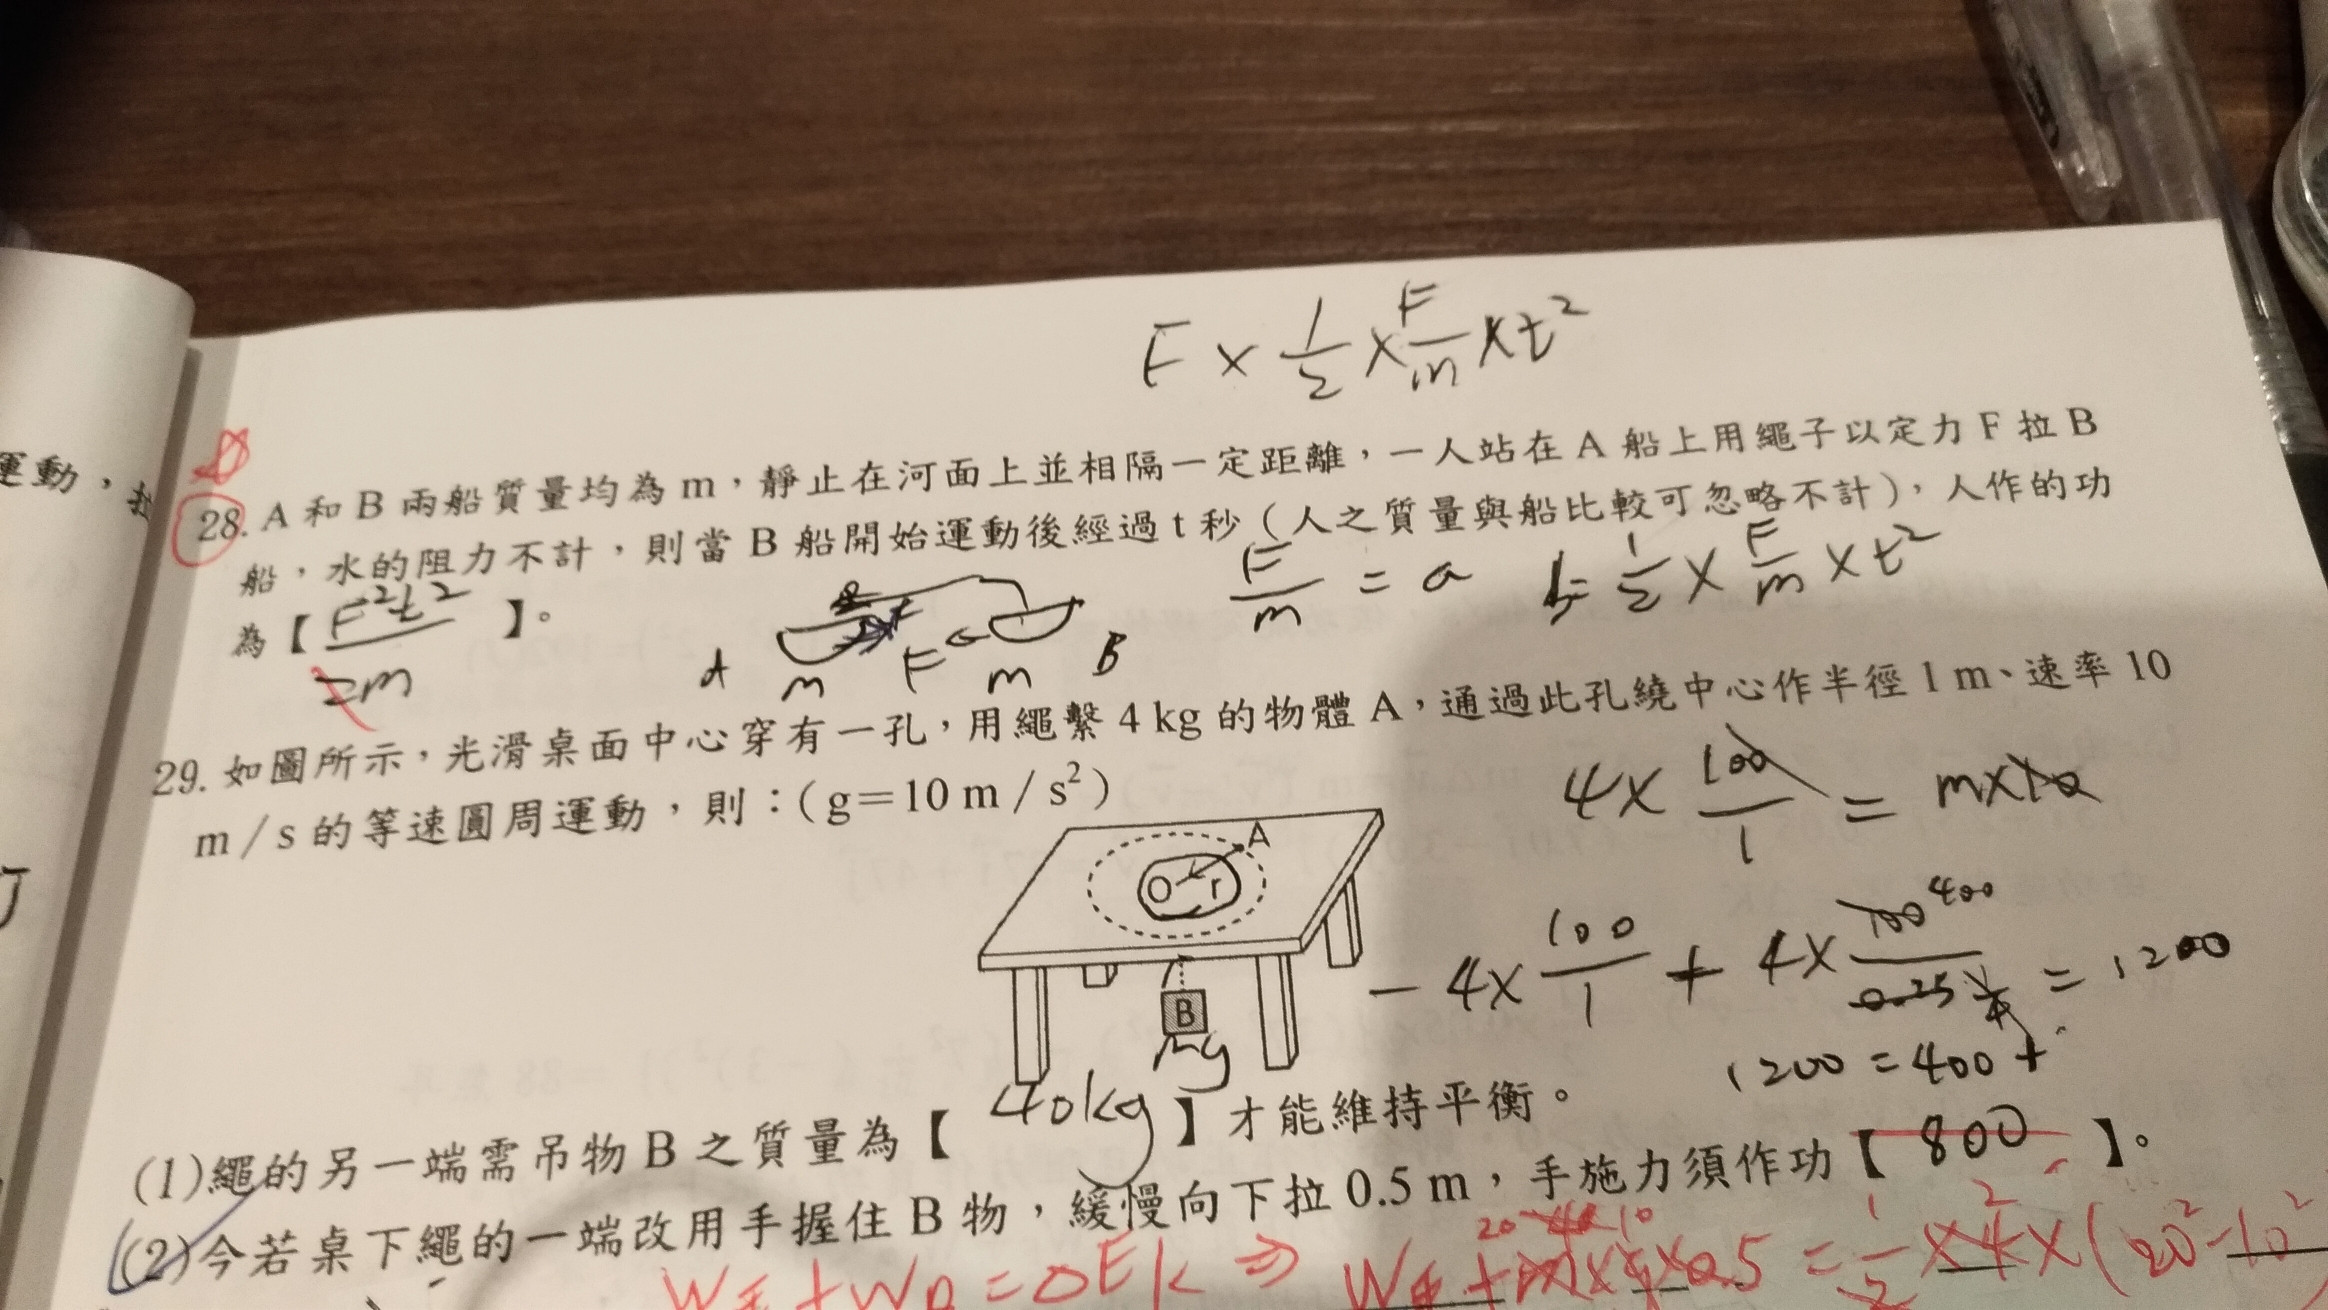 F × 1/2 × F/m × t²
運動，
28. A 和 B 兩船質量均為 m，靜止在河面上並相隔一定距離，一人站在 A 船上用繩子以定力 F 拉 B
船，水的阻力不計，則當 B 船開始運動後經過 t 秒（人之質量與船比較可忽略不計），人作的功
為【 F²t²/2m 】。
F/m = a
1/2 × F/m × t²
A m F m B
29. 如圖所示，光滑桌面中心穿有一孔，用繩繫 4 kg 的物體 A，通過此孔繞中心作半徑 1 m、速率 10
m / s 的等速圓周運動，則：( g＝10 m / s² )
4 × 100/1 = m×10
A
O r
B
mg
- 4 × 100/1 + 4 × 400 = 1200
1200 = 400 +
(1)繩的另一端需吊物 B 之質量為【 40kg 】才能維持平衡。
(2)今若桌下繩的一端改用手握住 B 物，緩慢向下拉 0.5 m，手施力須作功【 800 】。
W手 + WB = ΔEk ⇒ W手 + ×0.5 = 1/2 × 4 × (20² - 10²